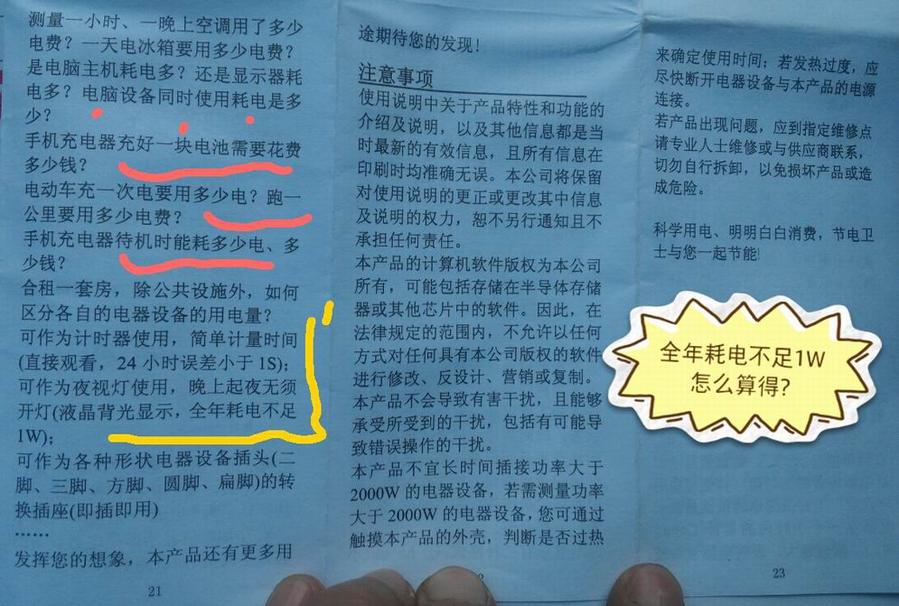 测量一小时、一晚上空调用了多少
电费？一天电冰箱要用多少电费？
是电脑主机耗电多？还是显示器耗
电多？电脑设备同时使用耗电是多
少？
手机充电器充好一块电池需要花费
多少钱？
电动车充一次电要用多少电？跑一
公里要用多少电费？
手机充电器待机时能耗多少电、多
少钱？
合租一套房，除公共设施外，如何
区分各自的电器设备的用电量？
可作为计时器使用，简单计量时间
(直接观看，24 小时误差小于 1S)；
可作为夜视灯使用，晚上起夜无须
开灯(液晶背光显示，全年耗电不足
1W)；
可作为各种形状电器设备插头(二
脚、三脚、方脚、圆脚、扁脚)的转
换插座(即插即用)
……
发挥您的想象，本产品还有更多用
21
途期待您的发现！
注意事项
使用说明中关于产品特性和功能的
介绍及说明，以及其他信息都是当
时最新的有效信息，且所有信息在
印刷时均准确无误。本公司将保留
对使用说明的更正或更改其中信息
及说明的权力，恕不另行通知且不
承担任何责任。
本产品的计算机软件版权为本公司
所有，可能包括存储在半导体存储
器或其他芯片中的软件。因此，在
法律规定的范围内，不允许以任何
方式对任何具有本公司版权的软件
进行修改、反设计、营销或复制。
本产品不会导致有害干扰，且能够
承受所受到的干扰，包括有可能导
致错误操作的干扰。
本产品不宜长时间插接功率大于
2000W 的电器设备，若需测量功率
大于 2000W 的电器设备，您可通过
触摸本产品的外壳，判断是否过热
来确定使用时间；若发热过度，应
尽快断开电器设备与本产品的电源
连接。
若产品出现问题，应到指定维修点
请专业人士维修或与供应商联系，
切勿自行拆卸，以免损坏产品或造
成危险。
科学用电、明明白白消费，节电卫
士与您一起节能!
全年耗电不足1W
怎么算得?
23